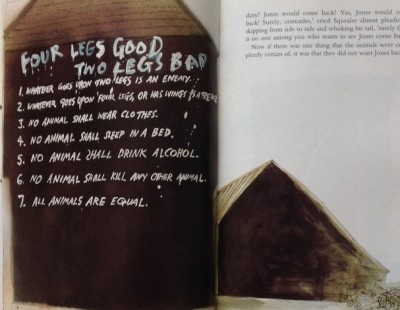 FOUR LEGS GOOD
TWO LEGS BAD
1. WHATEVER GOES UPON TWO LEGS IS AN ENEMY.
2. WHATEVER GOES UPON FOUR LEGS, OR HAS WINGS IS A FRIEND
3. NO ANIMAL SHALL WEAR CLOTHES.
4. NO ANIMAL SHALL SLEEP IN A BED.
5. NO ANIMAL SHALL DRINK ALCOHOL.
6. NO ANIMAL SHALL KILL ANY OTHER ANIMAL.
7. ALL ANIMALS ARE EQUAL.
duty! Jones would come back! Yes, Jones would
back! Surely, comrades,' cried Squealer almost
skipping from side to side and whisking his tail, 'surely
is no one among you who wants to see Jones come
Now if there was one thing that the animals were
pletely certain of, it was that they did not want Jones